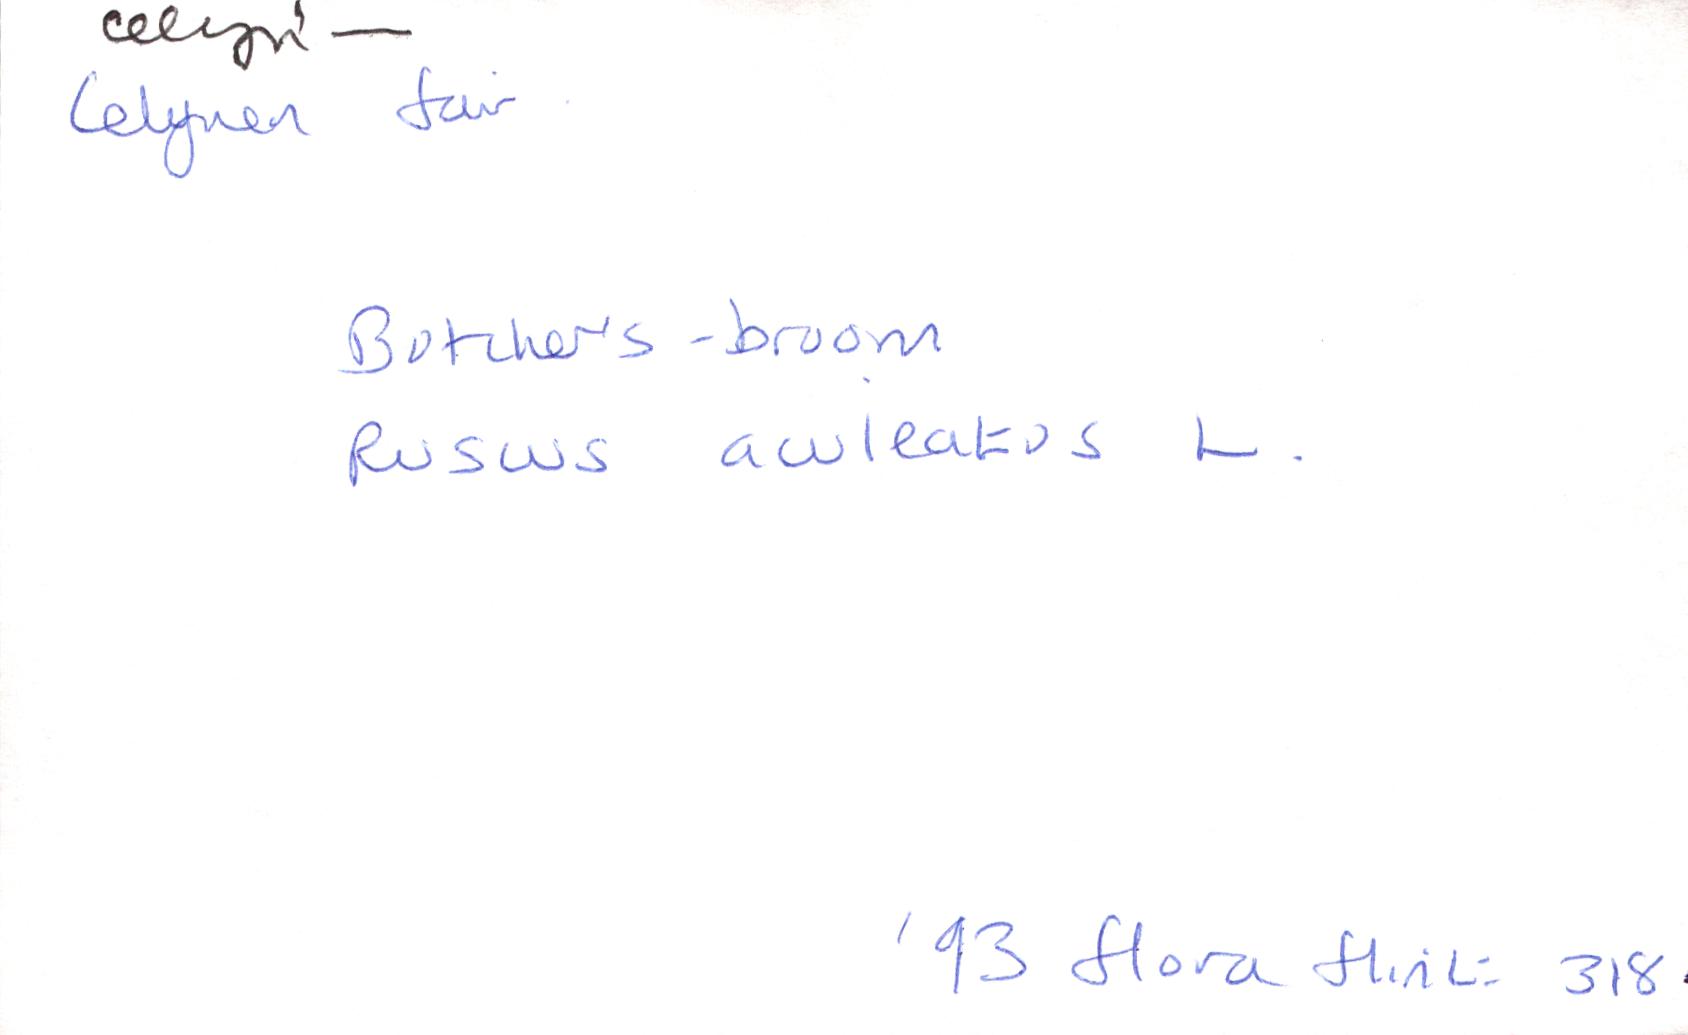 celyn —
Celynen fair
Butcher's-broom
Ruscus aculeatus L.
'93 flora flint: 318